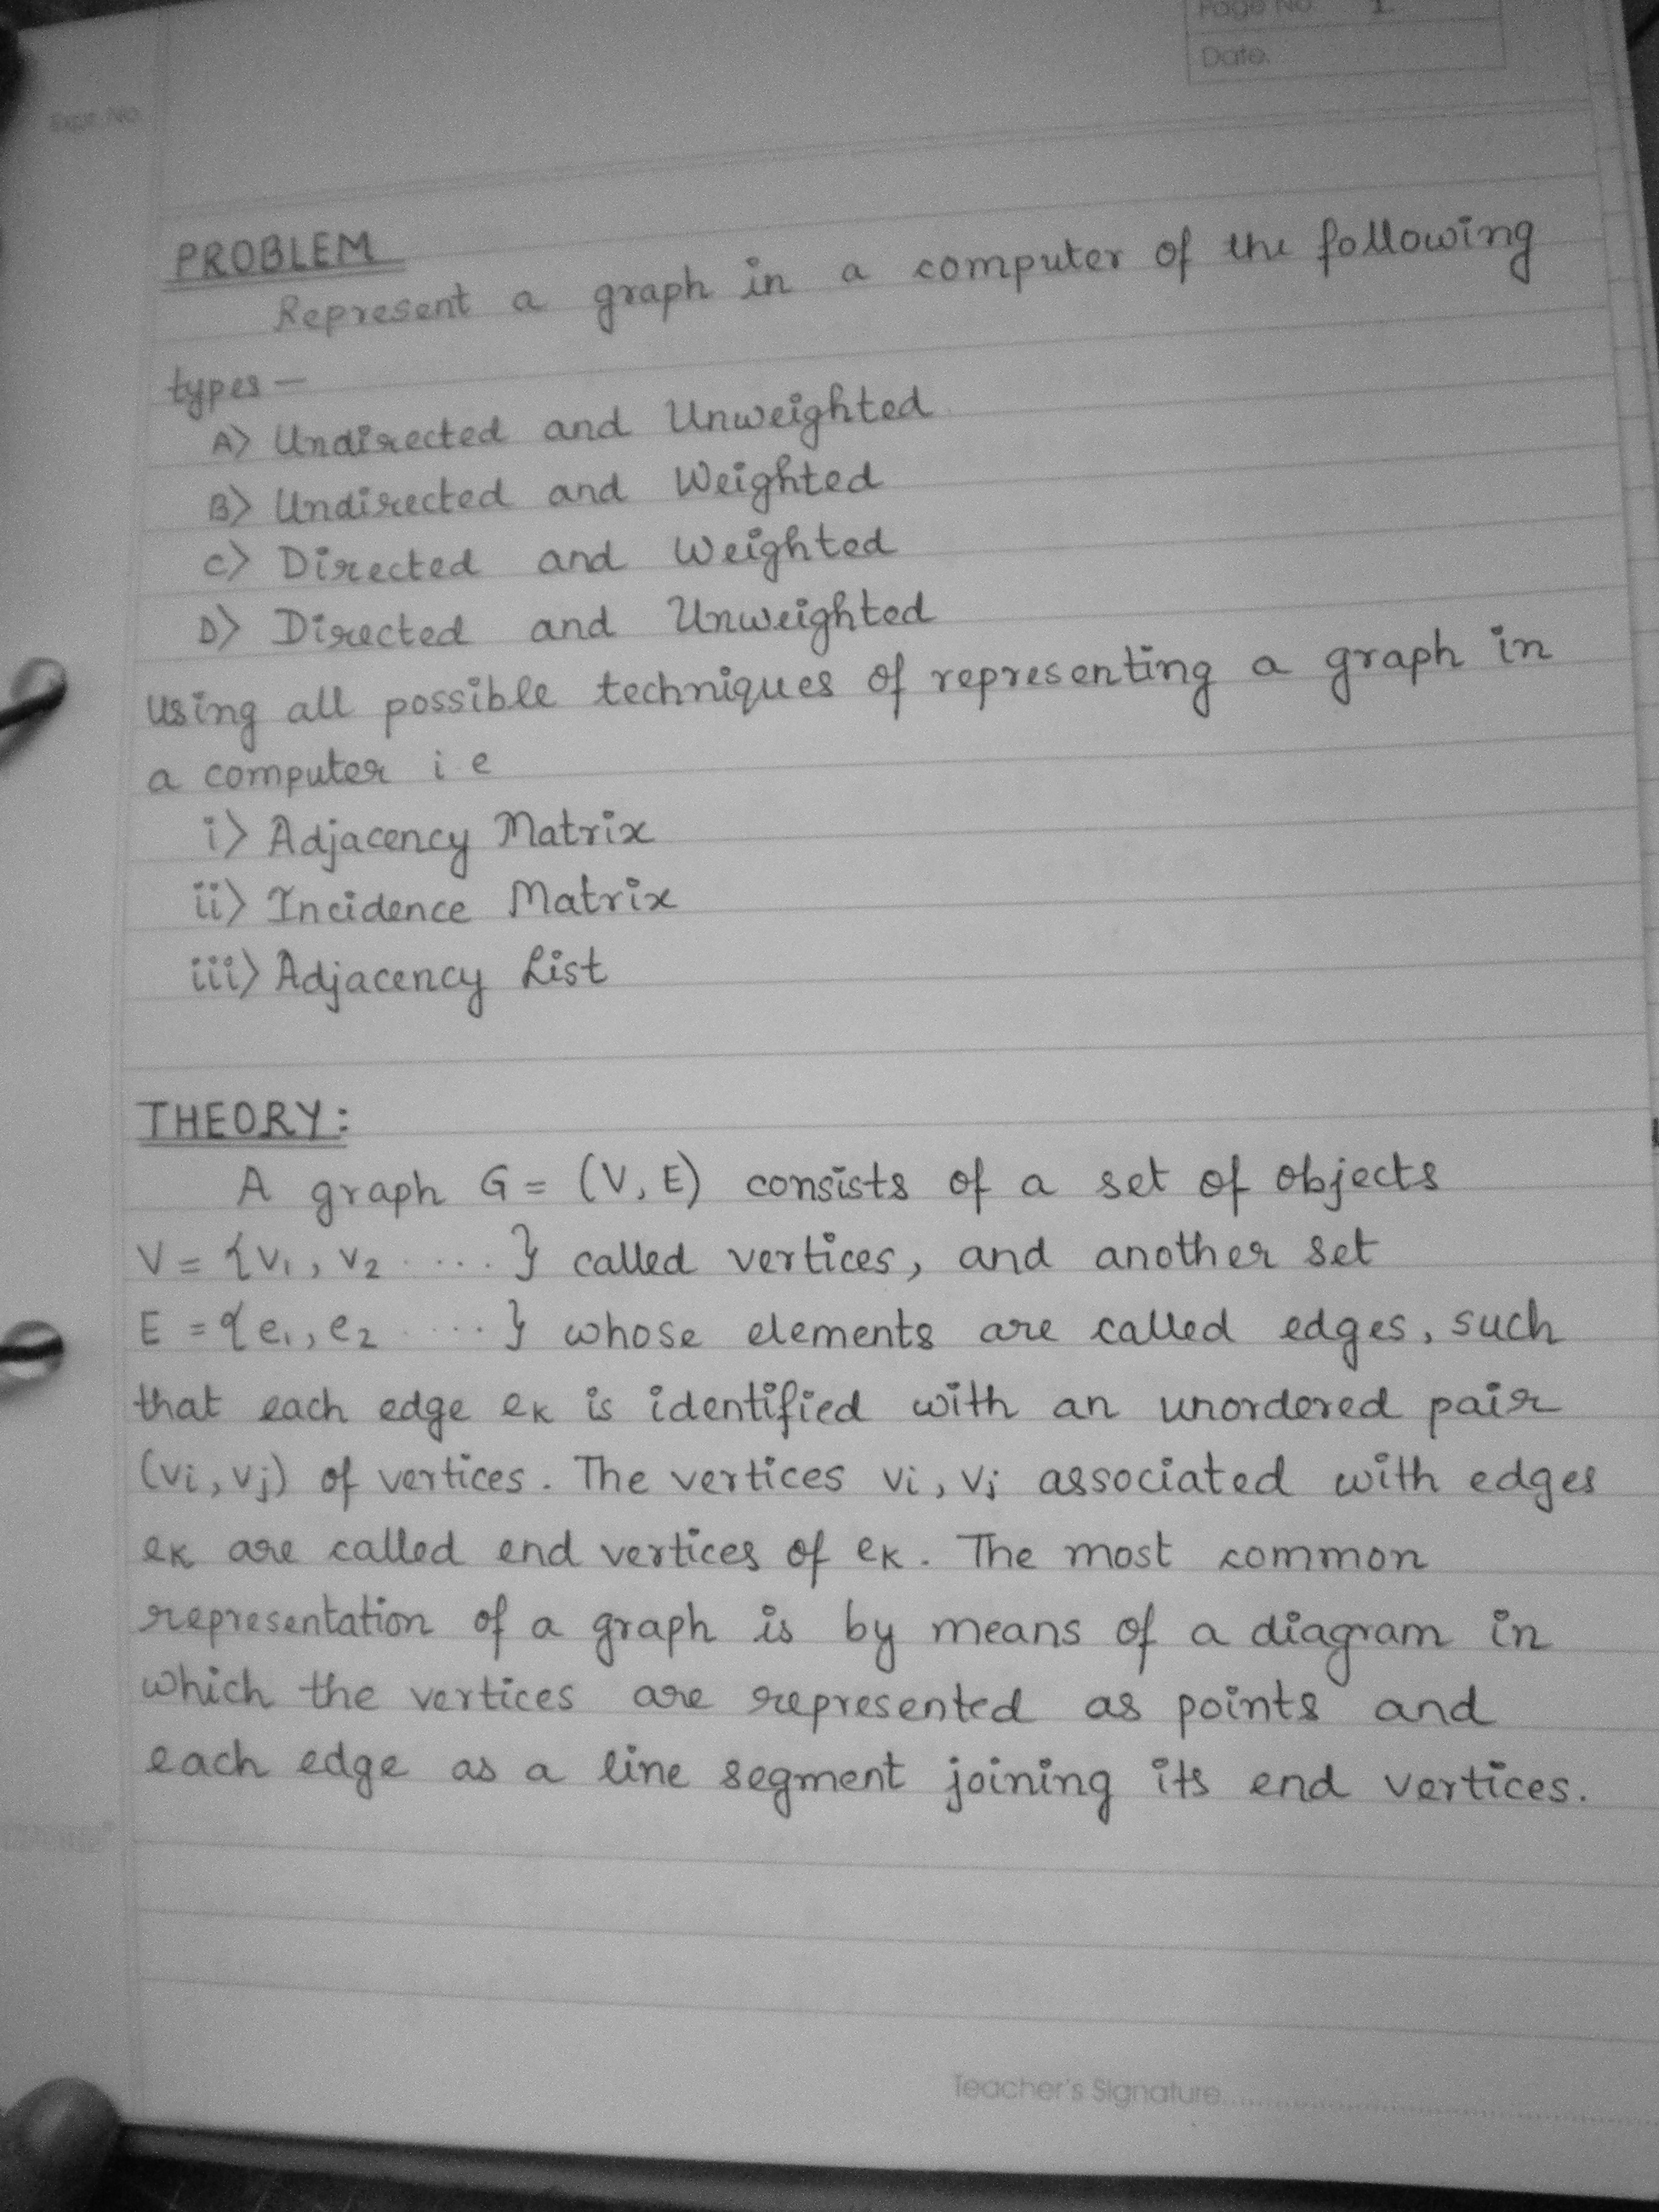 Page No. 1.
Date.
Expt. No.
PROBLEM
Represent a graph in a computer of the following
types —
A) Undirected and Unweighted
B) Undirected and Weighted
C) Directed and Weighted
D) Directed and Unweighted
Using all possible techniques of representing a graph in
a computer i e
i) Adjacency Matrix
ii) Incidence Matrix
iii) Adjacency List
THEORY:
A graph G = (V, E) consists of a set of objects
V = {v₁, v₂ .....} called vertices, and another set
E = {e₁, e₂ .....} whose elements are called edges, such
that each edge eK is identified with an unordered pair
(vi, vj) of vertices. The vertices vi, vj associated with edges
eK are called end vertices of eK. The most common
representation of a graph is by means of a diagram in
which the vertices are represented as points and
each edge as a line segment joining its end vertices.
Teacher's Signature